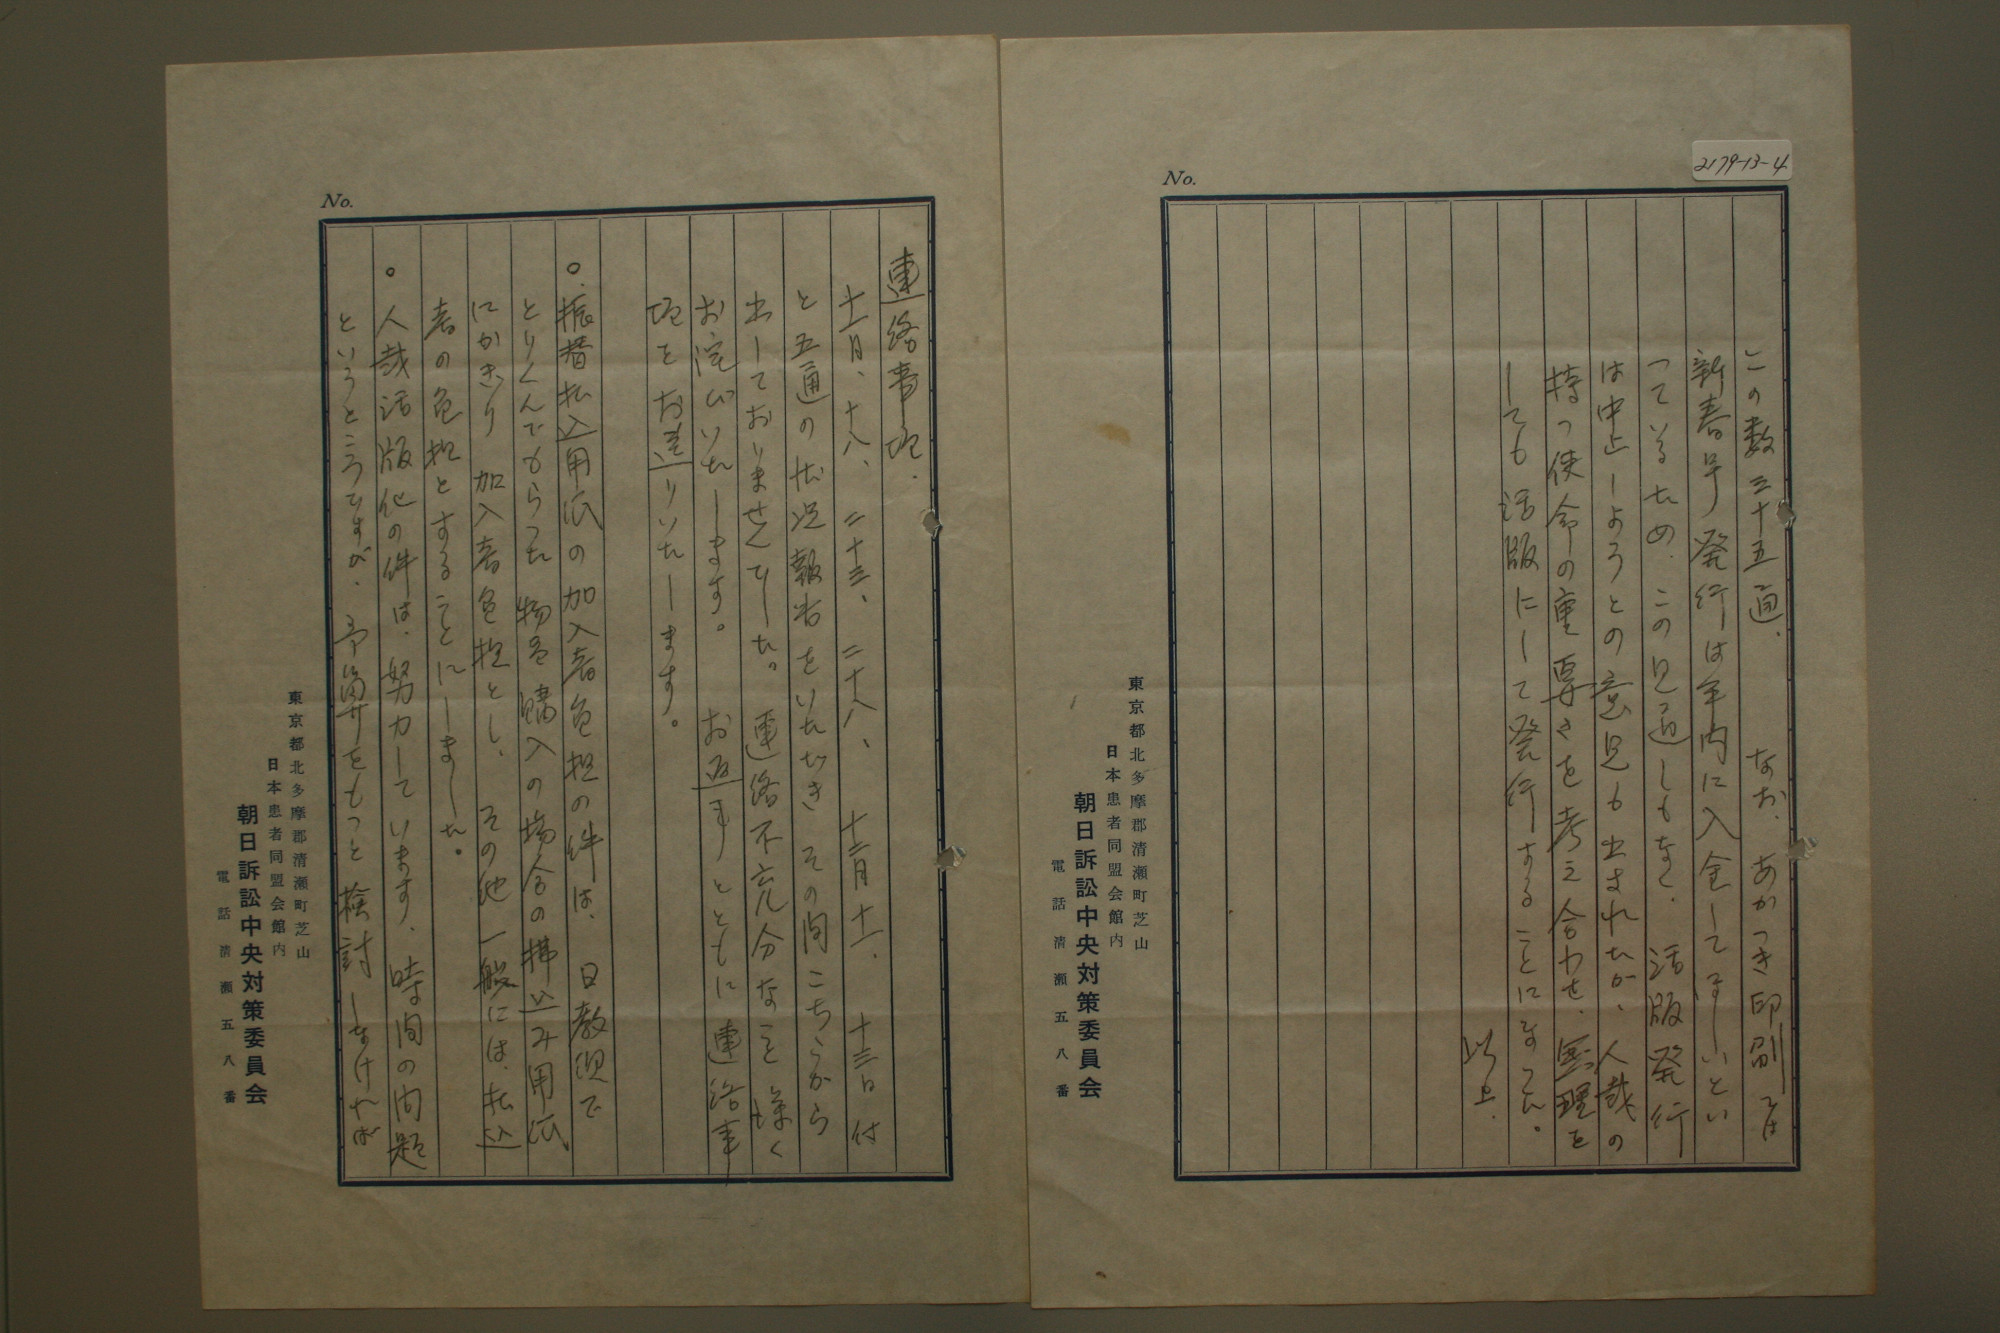 2179-13-4
No.
この数三十五通、なお、あかつき印刷では
新春号発行は年内に入金してほしいとい
っているため、この見通しもなく、活版発行
は中止しようとの意見も出まれたが、人裁の
持つ使命の重要さを考え合わせ、無理を
しても活版にして発行することになった。
以上.
東京都北多摩郡清瀬町芝山
日本患者同盟会館内
朝日訴訟中央対策委員会
電話清瀬五八番
No.
連絡事項.
十一月、十八、二十三、二十八、十二月十一、十三日付
と五通の状況報告をいただき その間こちらから
出しておりませんでした。連絡不充分なことを深く
お詫びいたします。お返事とともに連絡事
項をお送りいたします。
○振替払込用紙の加入者負担の件は、日教組で
とりくんでもらった物を購入の場合の拂込み用紙
にかぎり 加入者負担とし、その他一般には、払込
者の負担とすることにしました。
○人裁活版化の件は、努力しています、時間の問題
というところですが、予算をもっと検討しなければ
東京都北多摩郡清瀬町芝山
日本患者同盟会館内
朝日訴訟中央対策委員会
電話清瀬五八番